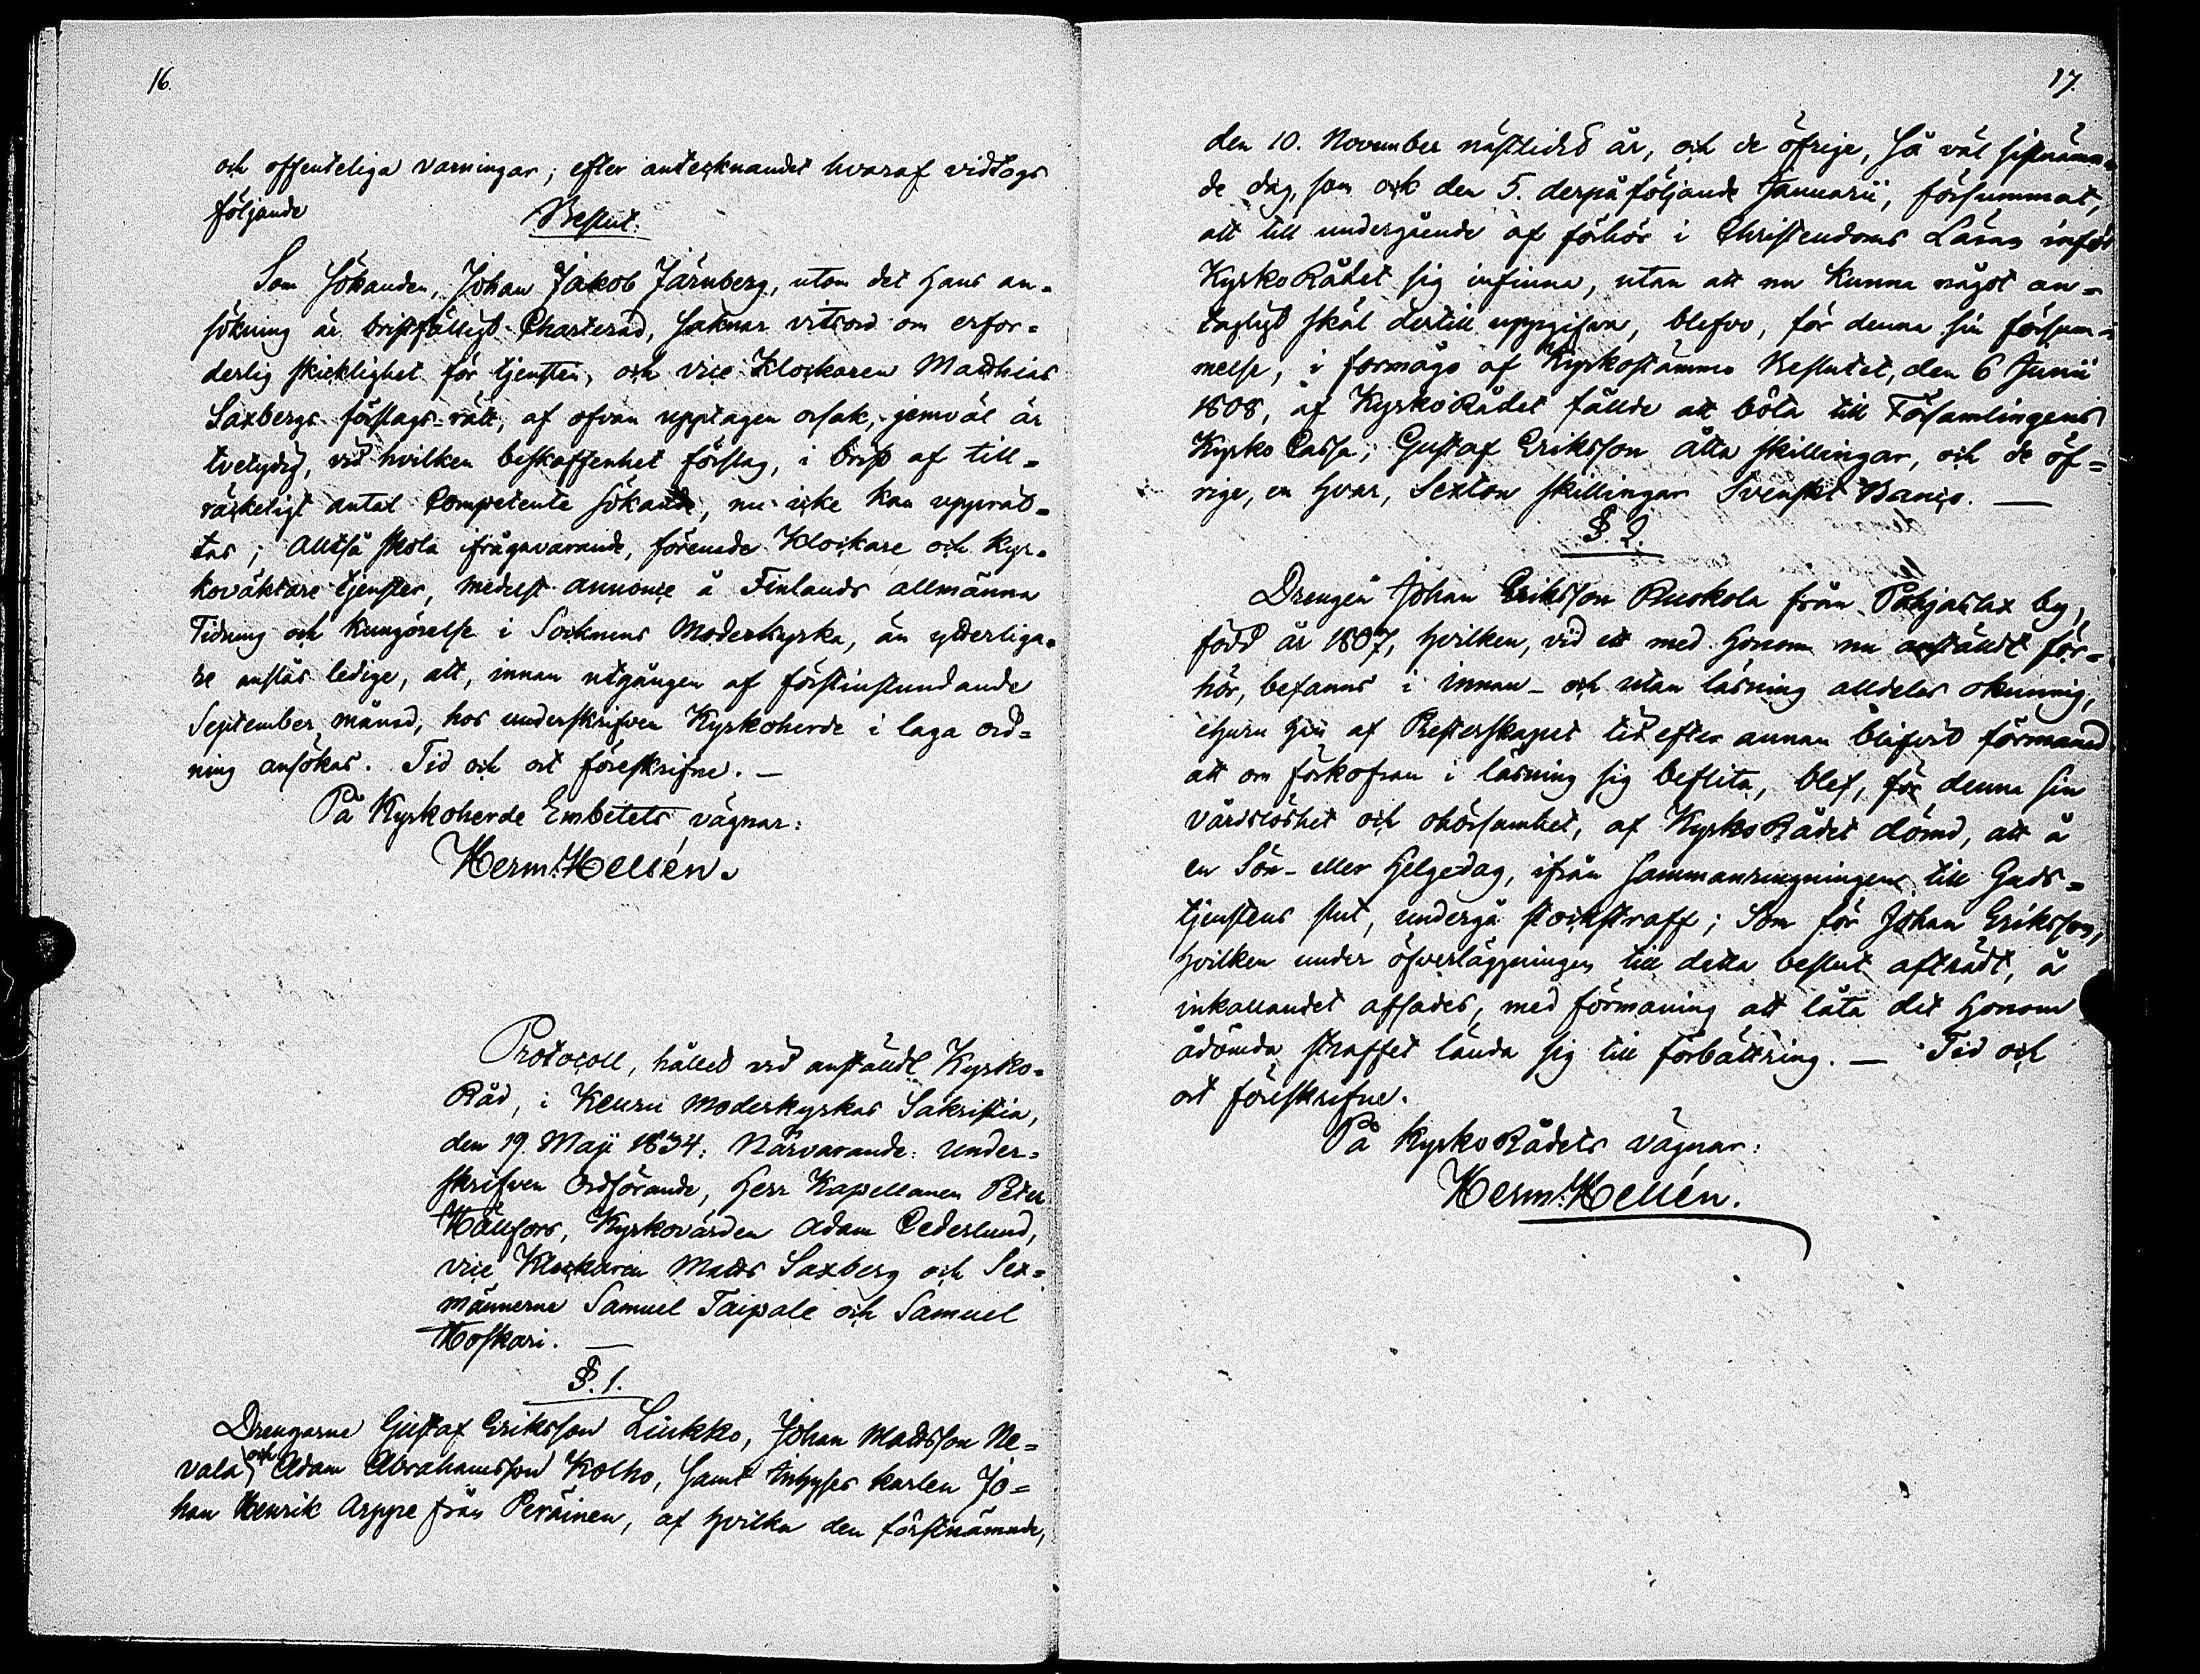 16.
och offenteliga varningar; efter antecknandet hvaraf vidtogs
följande
Beslut:
Som sökanden, Johan Jakob Järnberg, utom det hans an=
sökning är bristfälligt Charterad, saknar vitsord om erfor=
derlig skicklighet för tjensten, och vice Klockaren Matthias
Saxbergs förslags-rätt, af ofvan upptagen orsak, jemväl är
tvetydig, vid hvilken beskaffenhet förslag, i brist af till=
räckeligt antal Competente sökande, nu icke kan upprät=
tas; Alltså skola ifrågavarande, förenade Klockare och Kyr=
koväktare tjenster, medelst annonce å Finlands allmänna
Tidning och kungörelse i Socknens Moderkyrka, än ytterliga=
re anslås ledige, att, innan utgången af förstinstundande
September månad, hos underskrifven Kyrkoherde i laga ord=
ning ansökas. Tid och ort föreskrifne. —
På Kyrkoherde Embetets vägnar:
Herm: Hellén.
Protocoll, hållet vid anstäldt Kyrko=
Råd, i Keuru moderkyrkas Sakristia,
den 19. Maji 1834; Närvarande: under=
skrifven Ordförande, Herr Kapellanen Peter
Hällfors, Kyrkovärden Adam Cederlund,
vice Klockaren Matts Saxberg och Sex=
männerne Samuel Taipale och Samuel
Hoskari. —
§. 1.
Drengarne Gustaf Eriksson Liukko, Johan Mattsson Ne=
vala och Adam Abrahamsson Kolho, samt Inhyses karlen Jo=
han Henrik Arppe från Peräinen, af hvilka den förstnämnde,
17.
den 10. November nästledit år, och de öfrige, så väl sistnämn=
de dag, som ock den 5. derpåföljande Januarii, försummat,
att till undergående af förhör i Christendoms Läran inför
KyrkoRådet sig infinna, utan att nu kunna något an=
tagligt skäl dertill uppgifva, blefvo, för denna sin försum=
melse, i förmågo af Kyrkostämmo Beslutet, den 6 Junii
1808, af KyrkoRådet fällde att böta till Församlingens
Kyrko Cassa; Gustaf Eriksson åtta skillingar, och de öf=
rige, en hvar, Sexton skillingar Svenskt Banco. —
§. 2.
Drengen Johan Eriksson Ruokola från Pohjaslax by,
född år 1807, hvilken, vid ett med honom nu anstäldt för=
hör, befanns i innan- och utan läsning alldeles okunnig,
ehuru han af Presterskapet tid efter annan blifvit förmanad
att om förkofran i läsning sig beflita, blef, för denna sin
vårdslöshet och ohörsamhet, af KyrkoRådet dömd, att å
en Sön- eller Helgedag, ifrån Sammanringningen till Guds=
tjenstens slut, undergå stockstraff; Som för Johan Eriksson,
hvilken under öfverläggningen till detta beslut afträdt, å
inkallandet afsades, med förmaning att låta det honom
ådömda straffet lända sig till förbättring. — Tid och
ort föreskrifne.
På KyrkoRådets vägnar:
Herm: Hellén.